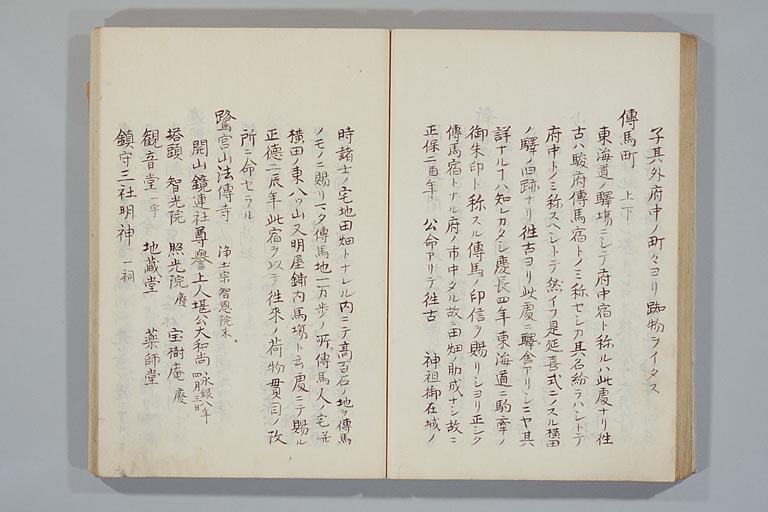 子其外府中ノ町々ヨリ跡物ヲイダス
傳馬町 上下
東海道ノ驛塲ニシテ府中宿ト称ルハ此處ナリ往
古ハ駿府傳馬宿トノミ称セシカ其名紛ラハシトテ
府中トノミ称スヘシトテ然イフ是延喜式ニノスル横田
ノ驛ノ旧跡ナリ往古ヨリ此處ニ驛舎アリシニヤ其
詳ナルヿハ知レカタシ慶長四年東海道ニ駒牽ノ
御朱印ト称スル傳馬ノ印信ヲ賜リシヨリ正シク
傳馬宿トナル府ノ市中タル故ニ田畑ノ助成ナシ故ニ
正保二酉年 公命アリテ往古 神祖御在城ノ
時諸士ノ宅地田畑トナレル内ニテ高百石ノ地ヲ傳馬
ノモノニ賜リニタ傳馬地一万歩ノ所傳馬人ノ宅並
横田ノ東八ツ山又明屋鋪内馬塲ト云處ニテ賜ル
正德二辰年此宿ヲ以テ往來ノ荷物貫目ノ改
所ニ命セラル
鷺宮山法傳寺 浄土宗智恩院末
開山鏡連社尊譽上人堪公大和尚
塔頭 智光院 照光院廢 宝樹庵廢
観音堂 一宇 地蔵堂 薬師堂
鎮守三社明神 一祠